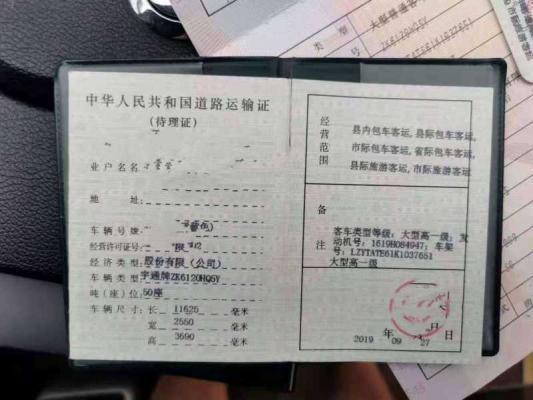 大型普通客
类型
ZK6120HQ5Y
中华人民共和国道路运输证
(待理证)
业户名称
地址
车辆号牌
经营许可证号
经济类型 股份有限(公司)
车辆类型 宇通牌ZK6120HQ5Y
吨(座)位 50座
车辆尺寸: 长 11625 毫米
宽 2550 毫米
高 3690 毫米
经营范围
县内包车客运,县际包车客运,
市际包车客运,省际包车客运,
县际旅游客运,市际旅游客运
备注
客车类型等级:大型高一级;发
动机号:1619H084947;车架
号:LZYTATE61K1037651
大型高一级
2019 年 09 月 27 日